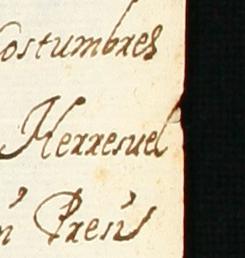 costumbres
Herresuel
n Pres's